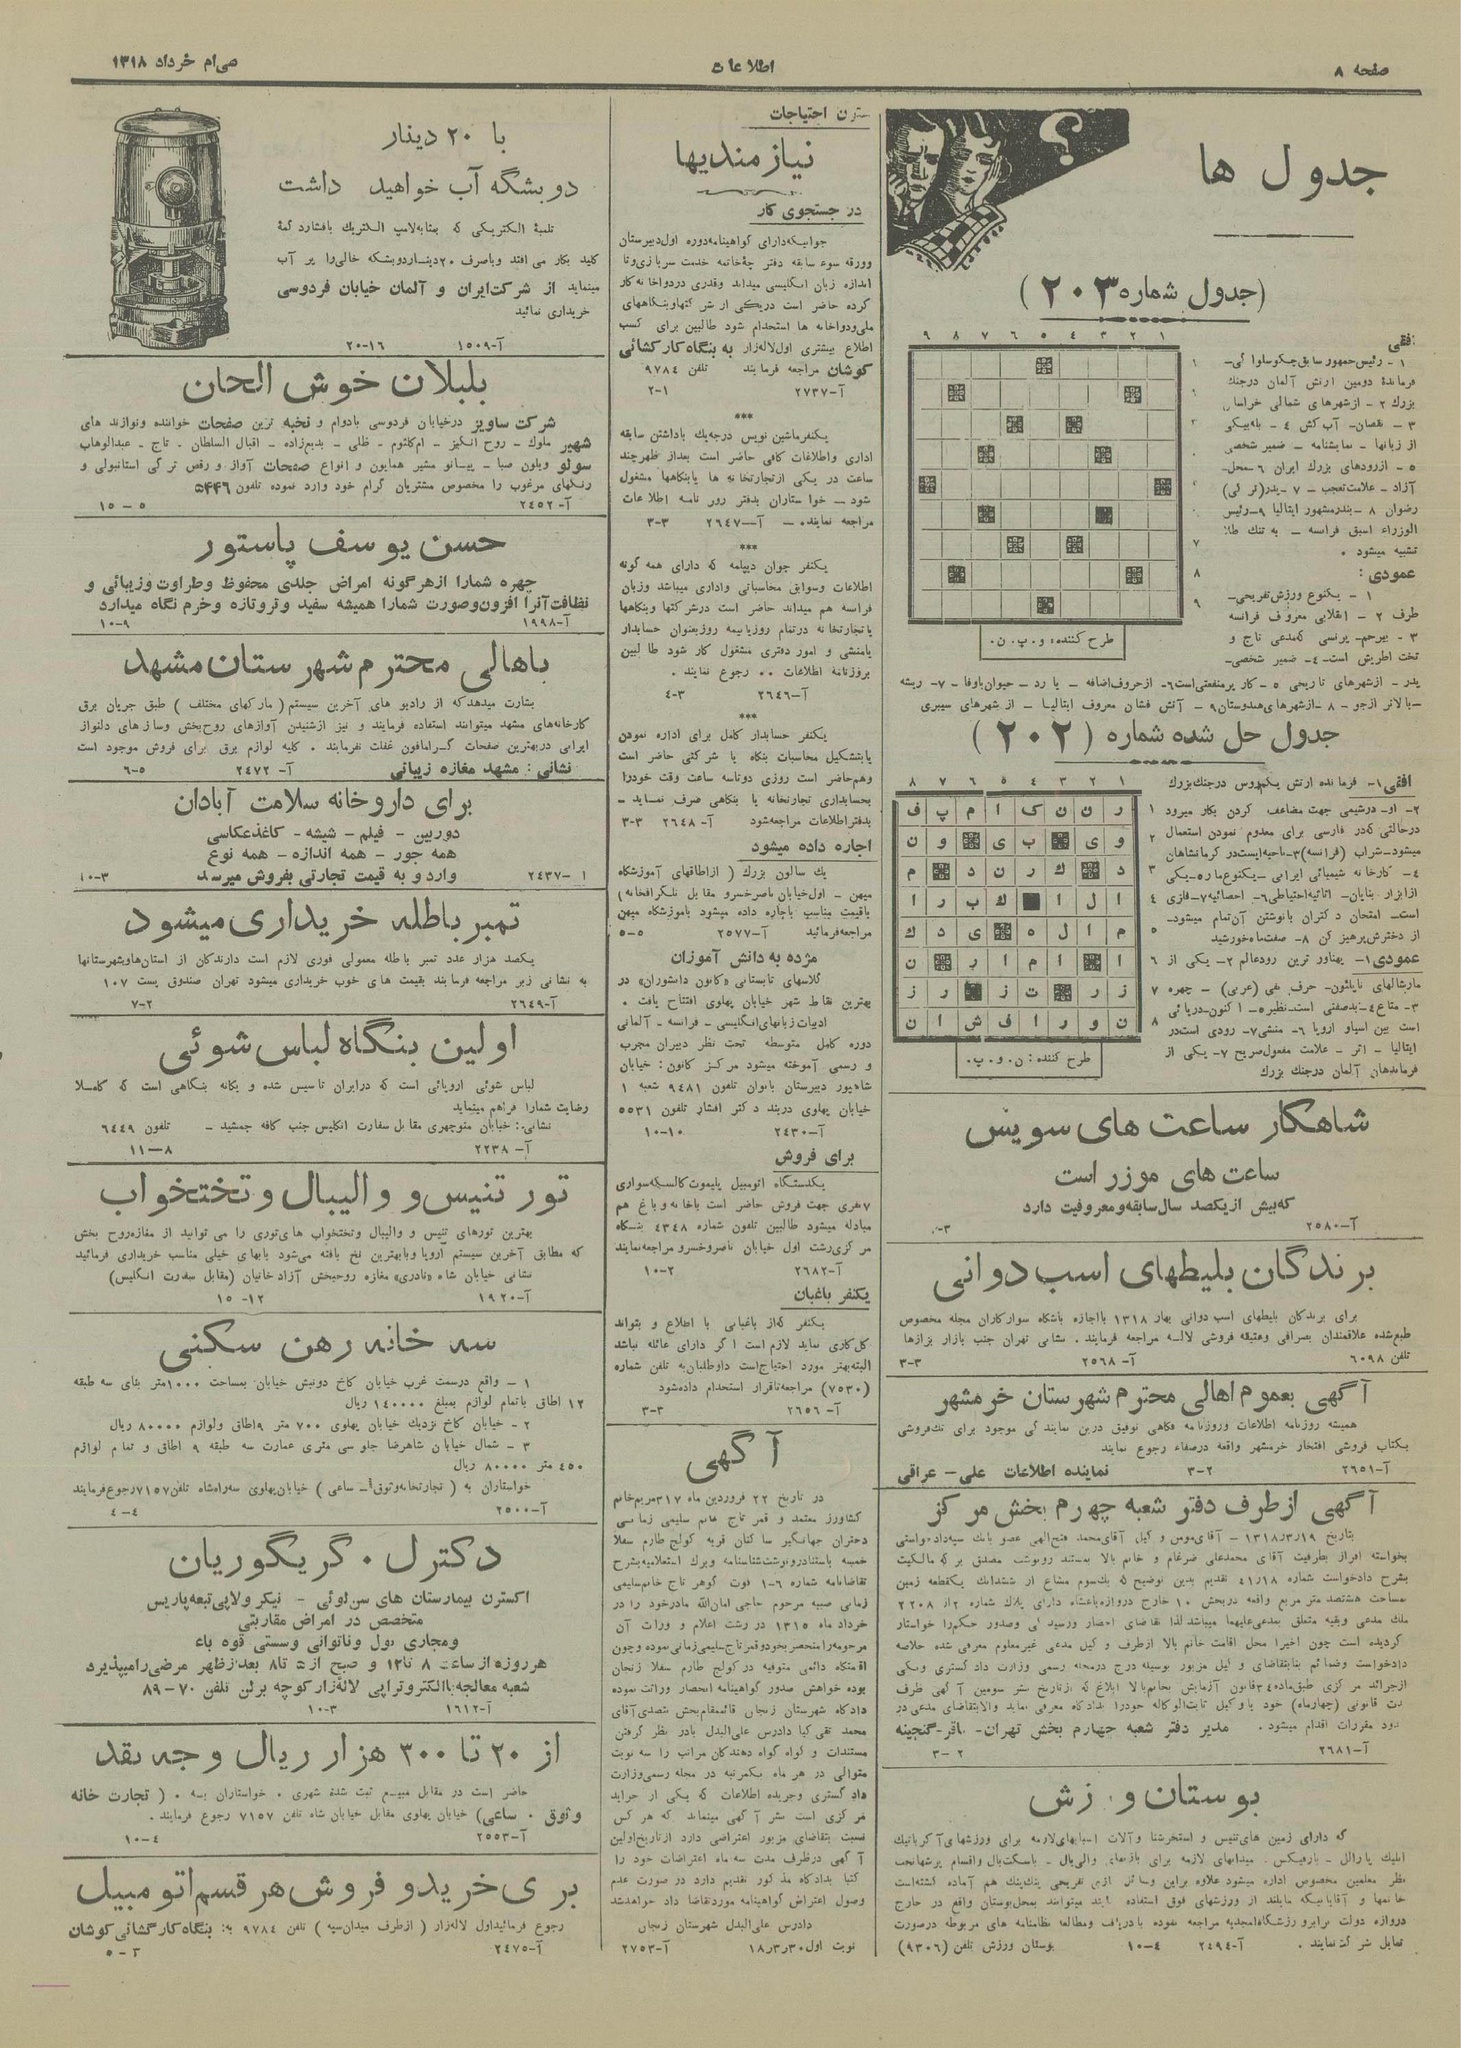 صفحه ۸
اطلاعات
سی‌ام خرداد ۱۳۱۸
جدول ها
(جدول شماره ۲۰۳)
۱ ۲ ۳ ۴ ۵ ۶ ۷ ۸ ۹
افقی
۱ - رئیس جمهور سابق چکوسلواکی -
فرماندهٔ دومین ارتش آلمان در جنگ
بزرگ ۲ - از شهرهای شمالی خراسان
۳ - نقصان - آب کش ۴ - به یکی
از زبانها - نمایشنامه - ضمیر شخصی
۵ - از رودهای بزرگ ایران ۶ - محل
آزاد - علامت تعجب - ۷ - پدر (ترکی)
رضوان ۸ - بندر مشهور ایتالیا ۹ - رئیس
الوزراء اسبق فرانسه - به تنگ طلا
تشبیه میشود .
عمودی :
۱ - یکنوع ورزش تفریحی -
طرف ۲ - انقلابی معروف فرانسه
۳ - بیرحم - پرنسی که مدعی تاج و
تخت اطریش است - ۴ - ضمیر شخصی -
پدر - از شهرهای تاریخی ۵ - کار پر منفعتی است ۶ - از حروف اضافه - یا رد - حیوان باوفا - ۷ - ریشه
- بالاتر از جو - ۸ - از شهرهای هندوستان ۹ - آتش فشان معروف ایتالیا - از شهرهای سیبری
طرح کننده : و . پ . ن .
جدول حل شده شماره (۲۰۲)
۱ ۲ ۳ ۴ ۵ ۶ ۷ ۸
ر ن ن ک ا م پ ف
و ی ب ی و ن
د ک ر ن د م
ا ل ا ک ب ر ا
م ا ل ه ی د ك
ا ا م ا ر ن
ز ر ت ز ر ز
ن و ر ا ف ش ا ن
طرح کننده : ن . و . پ .
افقی ۱ - فرمانده ارتش یکم روس در جنگ بزرگ
۲ - او - در شیمی جهت مضاعف کردن بکار میرود
در حالتی که در فارسی برای معدوم نمودن استعمال
میشود - شراب (فرانسه) ۳ - ناحیه ایست در کرمانشاهان
۴ - کارخانه شیمیائی ایرانی - یکنوع مار ۵ - یکی
از ابزار بنایان - اثاثیه احتیاطی ۶ - احصائیه ۷ - فلزی
است - امتحان دکتران با نوشتن آن تمام میشود -
از دخترش پرهیز کن ۸ - صفت ماه خورشید
عمودی ۱ - پهناور ترین رود عالم ۲ - یکی از
مارشالهای ناپلئون - حرف نفی (عربی) - چهره
۳ - متاع ۴ - بد صفتی است - نظیر ۵ - اکنون - دریائی
است بین آسیا و اروپا ۶ - منشی ۷ - رودی است در
ایتالیا - اثر - علامت مفعول صریح ۷ - یکی از
فرماندهان آلمان در جنگ بزرگ
شاهکار ساعت های سویس
ساعت های موزر است
که بیش از یکصد سال سابقه و معروفیت دارد
آ-۲۵۸۰
برندگان بلیطهای اسب دوانی
برای برندگان بلیطهای اسب دوانی بهار ۱۳۱۸ با اجازه باشگاه سوارکاران مجله مخصوص
طبع شده علاقمندان بصرافی و عتیقه فروشی لاله مراجعه فرمایند . نشانی تهران جنب بازار بزازها
تلفن ۶۰۹۸ آ-۲۵۶۸ ۳-۳
آگهی بعموم اهالی محترم شهرستان خرمشهر
همیشه روزنامه اطلاعات و روزنامه فکاهی توفیق در این نمایندگی موجود برای تک فروشی
بکتاب فروشی افتخار خرمشهر واقعه در صفاء رجوع نمایند
آ-۲۶۵۱ ۳-۲ نماینده اطلاعات علی - عراقی
آگهی از طرف دفتر شعبه چهارم بخش مرکز
بتاریخ ۱۳۱۸/۳/۱۹ - آقای مؤمن وکیل آقای محمد فتح الهی عضو بانک سپه دادخواستی
بخواسته افراز بطرفیت آقای محمدعلی ضرغام و خانم بالا بمستند رونوشت مصدق برگه مالکیت
بشرح دادخواست شماره ۴۱/۱۸ تقدیم بدین توضیح که یک سوم مشاع از ششدانگ یکقطعه زمین
بمساحت هشتصد متر مربع واقعه در بخش ۱۰ خارج دروازه باغشاه دارای پلاک شماره ۲ از ۲۲۰۸
ملک مدعی و بقیه متعلق بمدعی علیهما میباشد لذا تقاضای احضار و رسیدگی و صدور حکم را خواستار
گردیده است چون اخیرا محل اقامت خانم بالا از طرف وکیل مدعی غیر معلوم معرفی شده خلاصه
دادخواست وضمائم بنا بتقاضای وکیل مزبور بوسیله درج در مجله رسمی وزارت دادگستری و یکی
از جرائد مرکزی طبق ماده ۳۴ قانون آزمایش بخانم بالا ابلاغ که از تاریخ نشر سومین آگهی ظرف
مدت قانونی (چهار ماه) خود یا وکیل ثابت الوکاله خود را بدادگاه معرفی نماید والا بتقاضای مدعی در
حدود مقررات اقدام میشود . مدیر دفتر شعبه چهارم بخش تهران - باقر - گنجینه
آ-۲۶۸۱ ۳-۲
بوستان ورزش
که دارای زمین های تنیس و استخر شنا وآلات اسبابهای لازمه برای ورزشهای آکروباتیک
آنلیک پارالل - بارفیکس . میدانهای لازمه برای بازیهای والی بال - باسکت بال و اقسام پرشها تحت
نظر معلمین مخصوص اداره میشود علاوه براین وسائل بازی تفریحی پینگ پنگ هم آماده گشته است
خانمها و آقایانیکه مایلند از ورزشهای فوق استفاده نمایند میتوانند بمحل بوستان واقع در خارج
دروازه دولت برابر ورزشگاه امجدیه مراجعه نموده با دریافت و مطالعه نظامنامه های مربوطه در صورت
تمایل شرکت نمایند . آ-۲۴۹۴ ۱۰-۴ بوستان ورزش تلفن (۹۳۰۶)
ستون احتیاجات
نیازمندیها
در جستجوی کار
جوانیکه دارای گواهینامه دوره اول دبیرستان
وورقه سوء سابقه دفترچهٔ خاتمه خدمت سربازی و تا
اندازه زبان انگلیسی میداند و قدری در دواخانه کار
کرده حاضر است در یکی از شرکتها و بنگاههای
ملی و دواخانه ها استخدام شود طالبین برای کسب
اطلاع بیشتری اول لاله‌زار به بنگاه کارگشائی
کوشان مراجعه فرمایند تلفن ۹۷۸۴
آ-۲۷۳۷ ۲-۱
***
یکنفر ماشین نویس درجه یک با داشتن سابقه
اداری و اطلاعات کافی حاضر است بعد از ظهر چند
ساعت در یکی از تجارتخانه ها یا بنگاهها مشغول
شود - خواستاران بدفتر روزنامه اطلاعات
مراجعه نمایند - آ-۲۶۴۷ ۳-۳
***
یکنفر جوان دیپلمه که دارای همه گونه
اطلاعات و سوابق محاسباتی و اداری میباشد وزبان
فرانسه هم میداند حاضر است در شرکتها و بنگاهها
یا تجارتخانه در تمام روز یا نیمه روز بعنوان حسابدار
یا منشی و امور دفتری مشغول کار شود طالبین
بروزنامه اطلاعات .. رجوع نمایند .
آ-۲۶۴۶ ۴-۳
***
یکنفر حسابدار کامل برای اداره نمودن
یا تشکیل محاسبات بنگاه یا شرکتی حاضر است
وهم حاضر است روزی دو تا سه ساعت وقت خود را
بحسابداری تجارتخانه یا بنگاهی صرف نماید -
بدفتر اطلاعات مراجعه شود آ-۲۶۴۸ ۳-۳
اجاره داده میشود
یک سالون بزرگ (از اطاقهای آموزشگاه
میهن - اول خیابان ناصرخسرو مقابل تلگرافخانه)
باقیمت مناسب باجاره داده میشود بآموزشگاه میهن
مراجعه فرمائید آ-۲۵۷۷ ۵-۵
مژده به دانش آموزان
کلاسهای تابستانی «کانون دانشوران» در
بهترین نقاط شهر خیابان پهلوی افتتاح یافت .
ادبیات زبانهای انگلیسی - فرانسه - آلمانی
دوره کامل متوسطه تحت نظر دبیران مجرب
و رسمی آموخته میشود مرکز کانون : خیابان
شاهپور دبیرستان بانوان تلفون ۹۴۸۱ شعبه ۱
خیابان پهلوی دربند دکتر افشار تلفون ۵۵۳۱
آ-۲۴۳۰ ۱۰-۱۰
برای فروش
یکدستگاه اتومبیل پلیموت کالسکه سواری
۷ نفری جهت فروش حاضر است با خانه و باغ هم
مبادله میشود طالبین تلفون شماره ۴۳۴۸ بنگاه
مرکزی رشت اول خیابان ناصرخسرو مراجعه نمایند
آ-۲۶۸۲ ۱۰-۲
یکنفر باغبان
یکنفر که از باغبانی با اطلاع و بتواند
گل کاری نماید لازم است اگر دارای عائله نباشد
البته بهتر مورد احتیاج است داوطلبان به تلفن شماره
(۷۵۳۰) مراجعه تا قرار استخدام داده شود
آ-۲۶۵۶ ۳-۳
آگهی
در تاریخ ۲۲ فروردین ماه ۳۱۷ مریم خانم
کشاورز معتمد و قمر تاج خانم سلیمی زمانی
دختران جهانگیر ساکنان قریه کولج طارم سفلا
خمسه باستناد رونوشت شناسنامه و برگ استعلامیه بشرح
تقاضانامه شماره ۶-۱ فوت گوهر تاج خانم سلیمی
زمانی صبیه مرحوم حاجی امان‌الله مادر خود را در
خرداد ماه ۱۳۱۵ در رشت اعلام و وراث آن
مرحومه را منحصر بخود و قمر تاج سلیمی زمانی نموده و چون
اقامتگاه دائمی متوفیه در کولج طارم سفلا زنجان
بوده خواهش صدور گواهینامه انحصار وراثت نموده
دادگاه شهرستان زنجان قائممقام بخش بتصدی آقای
محمد تقی کیا دادرس علی‌البدل با در نظر گرفتن
مستندات و گواه گواه دهندگان مراتب را سه نوبت
متوالی در هر ماه یکمرتبه در مجله رسمی وزارت
دادگستری و جریده اطلاعات که یکی از جراید
مرکزی است نشر آگهی مینماید که هر کس
نسبت بتقاضای مزبور اعتراضی دارد از تاریخ اولین
آگهی در ظرف مدت سه ماه اعتراضات خود را
کتبا بدادگاه مذکور تقدیم دارد در صورت عدم
وصول اعتراض گواهینامه مورد تقاضا داده خواهد شد
دادرس علی‌البدل شهرستان زنجان
نوبت اول ۱۸/۳/۳۰ آ-۲۷۵۳
با ۲۰ دینار
دو بشگه آب خواهید داشت
تلمبهٔ الکتریکی که بمثابه لامپ الکتریک بافشار دکمهٔ
کلید بکار می افتد و باصرف ۲۰ دینار دو بشکه خالی را پر آب
مینماید از شرکت ایران و آلمان خیابان فردوسی
خریداری نمائید
آ-۱۵۰۹ ۲۰-۱۶
بلبلان خوش الحان
شرکت ساویز در خیابان فردوسی بادوام و نخبه ترین صفحات خواننده ونوازنده های
شهیر ملوک - روح انگیز - ام کلثوم - ظلی - بدیع زاده - اقبال السلطان . تاج - عبدالوهاب
سولو ویلون صبا - پیانو مشیر همایون و انواع صفحات آواز و رقص ترکی استانبولی و
رنگهای مرغوب را مخصوص مشتریان گرام خود وارد نموده تلفون ۵۴۴۶
آ-۲۴۵۲ ۱۵-۵
حسن یوسف پاستور
چهره شما را از هر گونه امراض جلدی محفوظ و طراوت و زیبائی و
نظافت آنرا افزون و صورت شما را همیشه سفید و تر و تازه و خرم نگاه میدارد
آ-۱۹۹۸ ۱۰-۹
باهالی محترم شهرستان مشهد
بشارت میدهد که از رادیو های آخرین سیستم (مارکهای مختلف) طبق جریان برق
کارخانه‌های مشهد میتوانند استفاده فرمایند و نیز از شنیدن آوازهای روح بخش و سازهای دلنواز
ایرانی در بهترین صفحات گرامافون غفلت نفرمایند . کلیه لوازم برق برای فروش موجود است
نشانی : مشهد مغازه زیبائی آ-۲۴۷۲ ۶-۵
برای داروخانه سلامت آبادان
دوربین - فیلم - شیشه - کاغذ عکاسی
همه جور - همه اندازه - همه نوع
وارد و به قیمت تجارتی بفروش میرسد
آ-۲۴۳۷ ۱۰-۳
تمبر باطله خریداری میشود
یکصد هزار عدد تمبر باطله معمولی فوری لازم است دارندگان از استان‌ها و شهرستانها
به نشانی زیر مراجعه فرمایند بقیمت های خوب خریداری میشود تهران صندوق پست ۱۰۷
آ-۲۶۴۹ ۷-۲
اولین بنگاه لباس شوئی
لباس شوئی اروپائی است که در ایران تاسیس شده و یگانه بنگاهی است که کاملا
رضایت شما را فراهم مینماید
نشانی : خیابان منوچهری مقابل سفارت انگلیس جنب کافه جمشید - تلفون ۶۴۴۹
آ-۲۲۳۸ ۱۱-۸
تور تنیس و والیبال و تختخواب
بهترین تورهای تنیس و والیبال و تختخواب های توری را می توانید از مغازه روح بخش
که مطابق آخرین سیستم اروپا و با بهترین نخ بافته می‌شود ببهای خیلی مناسب خریداری فرمائید
نشانی خیابان شاه «نادری» مغازه روحبخش آزاد خانیان (مقابل سفارت انگلیس)
آ-۱۹۲۰ ۱۵-۱۲
سه خانه رهن سکنی
۱ - واقع در سمت غرب خیابان کاخ دو نبش خیابان بمساحت ۱۰۰۰ متر بنای سه طبقه
۱۲ اطاق با تمام لوازم بمبلغ ۱۴۰۰۰۰ ریال
۲ - خیابان کاخ نزدیک خیابان پهلوی ۷۰۰ متر ۹ اطاق ولوازم ۸۰۰۰۰ ریال
۳ - شمال خیابان شاهرضا جلو سی متری عمارت سه طبقه ۹ اطاق و تمام لوازم
۴۵۰ متر ۸۰۰۰۰ ریال
خواستاران به (تجارتخانه وثوق - ساعی) خیابان پهلوی سه راه شاه تلفن ۷۱۵۷ رجوع فرمایند
آ-۲۵۰۰ ۴-۴
دکتر ل . گریگوریان
اکسترن بیمارستان های سن لوئی - نیکر ولاپی تیه پاریس
متخصص در امراض مقاربتی
ومجاری بول وناتوانی وسستی قوه باء
هر روزه از ساعت ۸ تا ۱۲ و صبح از ۵ تا ۸ بعد از ظهر مرضی را میپذیرد
شعبه معالجه با الکتروتراپی لاله‌زار کوچه برلن تلفن ۷۰-۸۹
آ-۱۶۱۲ ۱۰-۳
از ۲۰ تا ۳۰۰ هزار ریال وجه نقد
حاضر است در مقابل مبیع ثبت شده شهری . خواستاران به . (تجارت خانه
وثوق . ساعی) خیابان پهلوی مقابل خیابان شاه تلفن ۷۱۵۷ رجوع فرمایند .
آ-۲۵۵۳ ۱۰-۴
برای خرید و فروش هر قسم اتومبیل
رجوع فرمائید اول لاله‌زار (از طرف میدان سپه) تلفن ۹۷۸۴ به : بنگاه کارگشائی کوشان
آ-۲۴۷۵ ۵-۳